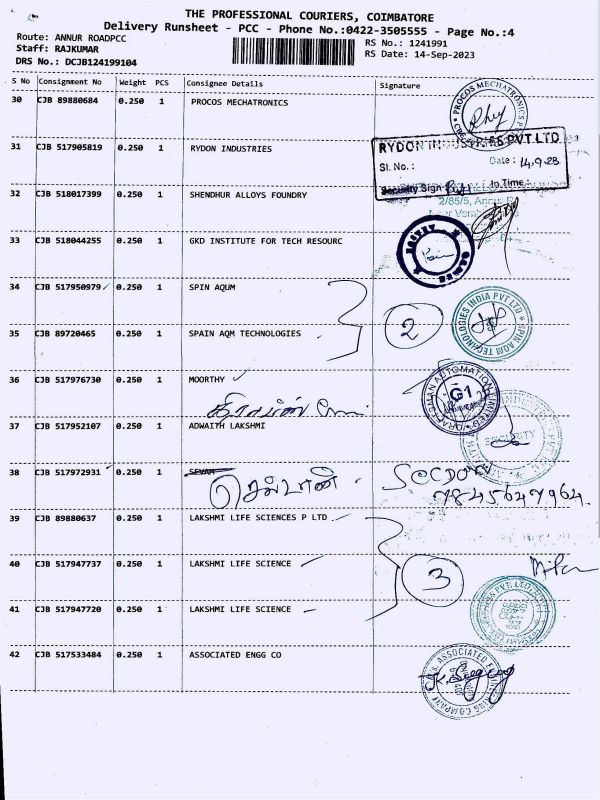 THE PROFESSIONAL COURIERS, COIMBATORE
Delivery Runsheet - PCC - Phone No.:0422-3505555 - Page No.:4
Route: ANNUR ROADPCC
RS No.: 1241991
Staff: RAJKUMAR
RS Date: 14-Sep-2023
DRS No.: DCJB124199104
S No Consignment No Weight PCS Consignee Details Signature
30 CJB 89880684 0.250 1 PROCOS MECHATRONICS
PROCOS MECHATRONICS
31 CJB 517905819 0.250 1 RYDON INDUSTRIES
RYDON INDUSTRIES PVT LTD
Sl. No.: Date: 14.9.23
Security Sign In Time:
32 CJB 518017399 0.250 1 SHENDHUR ALLOYS FOUNDRY
2/85/5, Annur
33 CJB 518044255 0.250 1 GKD INSTITUTE FOR TECH RESOURC
34 CJB 517950979 0.250 1 SPIN AQUM
2
SPIN AQM TECHNOLOGIES INDIA PVT LTD
35 CJB 89720465 0.250 1 SPAIN AQM TECHNOLOGIES
36 CJB 517976730 0.250 1 MOORTHY
DRAFTSMAN AUTOMATION LIMITED
G1
37 CJB 517952107 0.250 1 ADWAITH LAKSHMI
SECURITY
38 CJB 517972931 0.250 1 SEVAM
7845647964
39 CJB 89880637 0.250 1 LAKSHMI LIFE SCIENCES P LTD
40 CJB 517947737 0.250 1 LAKSHMI LIFE SCIENCE
3
41 CJB 517947720 0.250 1 LAKSHMI LIFE SCIENCE
42 CJB 517533484 0.250 1 ASSOCIATED ENGG CO
ASSOCIATED ENGINEERING COMPANY